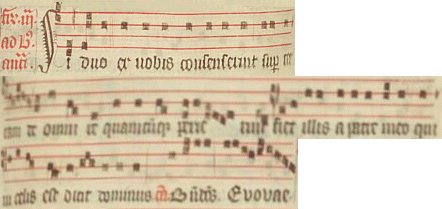 fer. iij
ad B. Si duo ex vobis consenserint sup ter
anā
ram de omni re quancūqȝ petie rint fiet illis a patre meo qui
in celis est dicit dominus. Evovae.